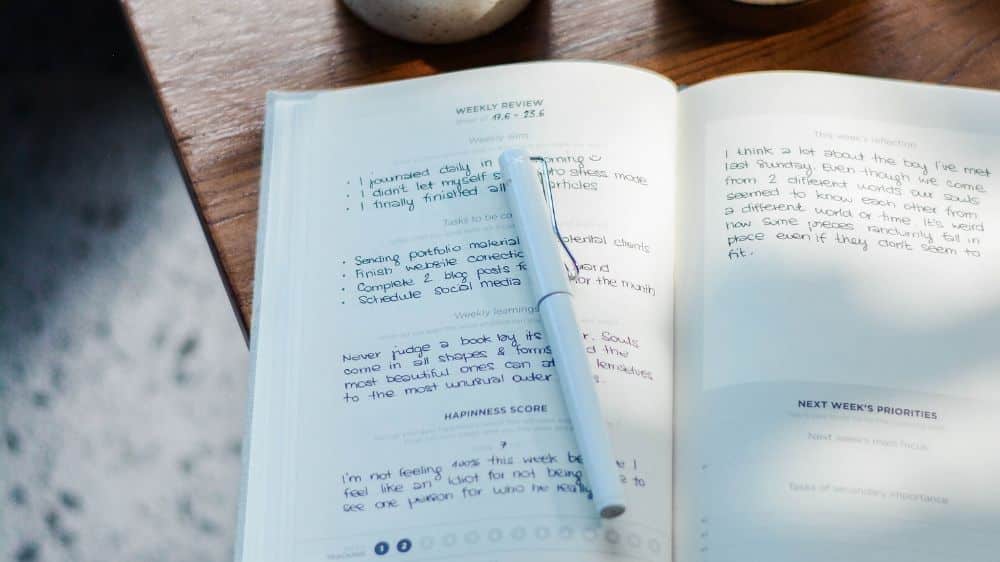 WEEKLY REVIEW
17.6 - 23.6
Weekly wins
• I journaled daily in orning
• I didn't let myself s to stress mode
• I finally finished all
Tasks to be co
• Sending portfolio material otential clients
• Finish website correctio
• Complete 2 blog posts fo
• Schedule social media for the month
Weekly learnings
Never judge a book by its r. Souls
come in all shapes & forms d the
most beautiful ones can at hemselves
to the most unusual outer s.
HAPINNESS SCORE
7
i'm not feeling 100% this week be e I
feel like an idiot for not being e to
see one person for who he really
TRACKING 1 2
This week's reflection
I think a lot about the boy I've met
last Sunday. Even though we come
from 2 different worlds our souls
seemed to know each other from
a different world or time. It's weird
how some pieces randomly fall in
place even if they don't seem to
fit.
NEXT WEEK'S PRIORITIES
Next week's main focus
Tasks of secondary importance